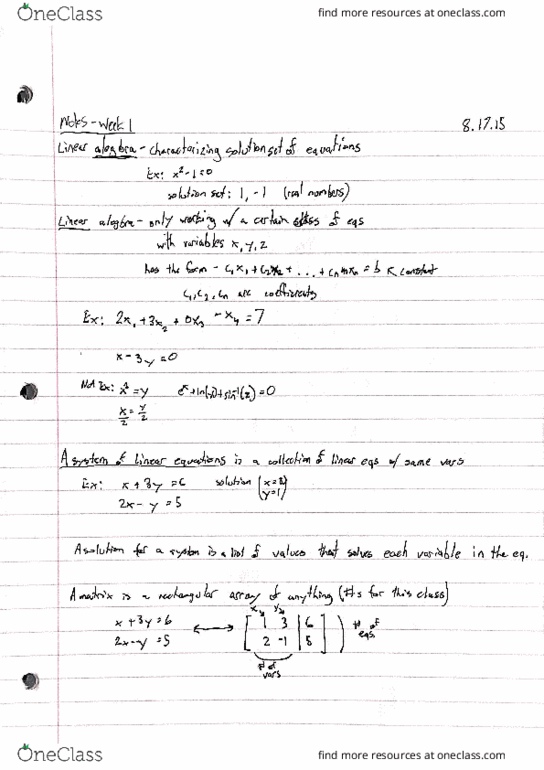 OneClass
find more resources at oneclass.com
Notes - Week 1
8.17.15
Linear alegbra - charactorizing solution set of equations
Ex: x²-1=0
solution set: 1, -1 (real numbers)
Linear alegbra - only working w/ a certain class of eqs
with variables x, y, z
has the form - c₁x₁+c₂x₂+...+cₙxₙ=b ↖ constant
c₁,c₂,cₙ are coefficients
Ex: 2x₁+3x₂+0x₃-x₄=7
x-3y=0
Not Ex: x²=y eˣ+ln(y)+sin⁻¹(z)=0
x/2=y/2
A system of linear equations is a collection of linear eqs w/ same vars
Ex: x+3y=6 solution (x=3
2x-y=5 y=1)
A solution for a system is a list of values that solves each variable in the eq.
A matrix is a rectangular array of anything (#s for this class)
x y
x+3y=6 ↔ [1 3 | 6 # of
2x-y=5 2 -1 | 5] eqs.
# of
vars
OneClass
find more resources at oneclass.com